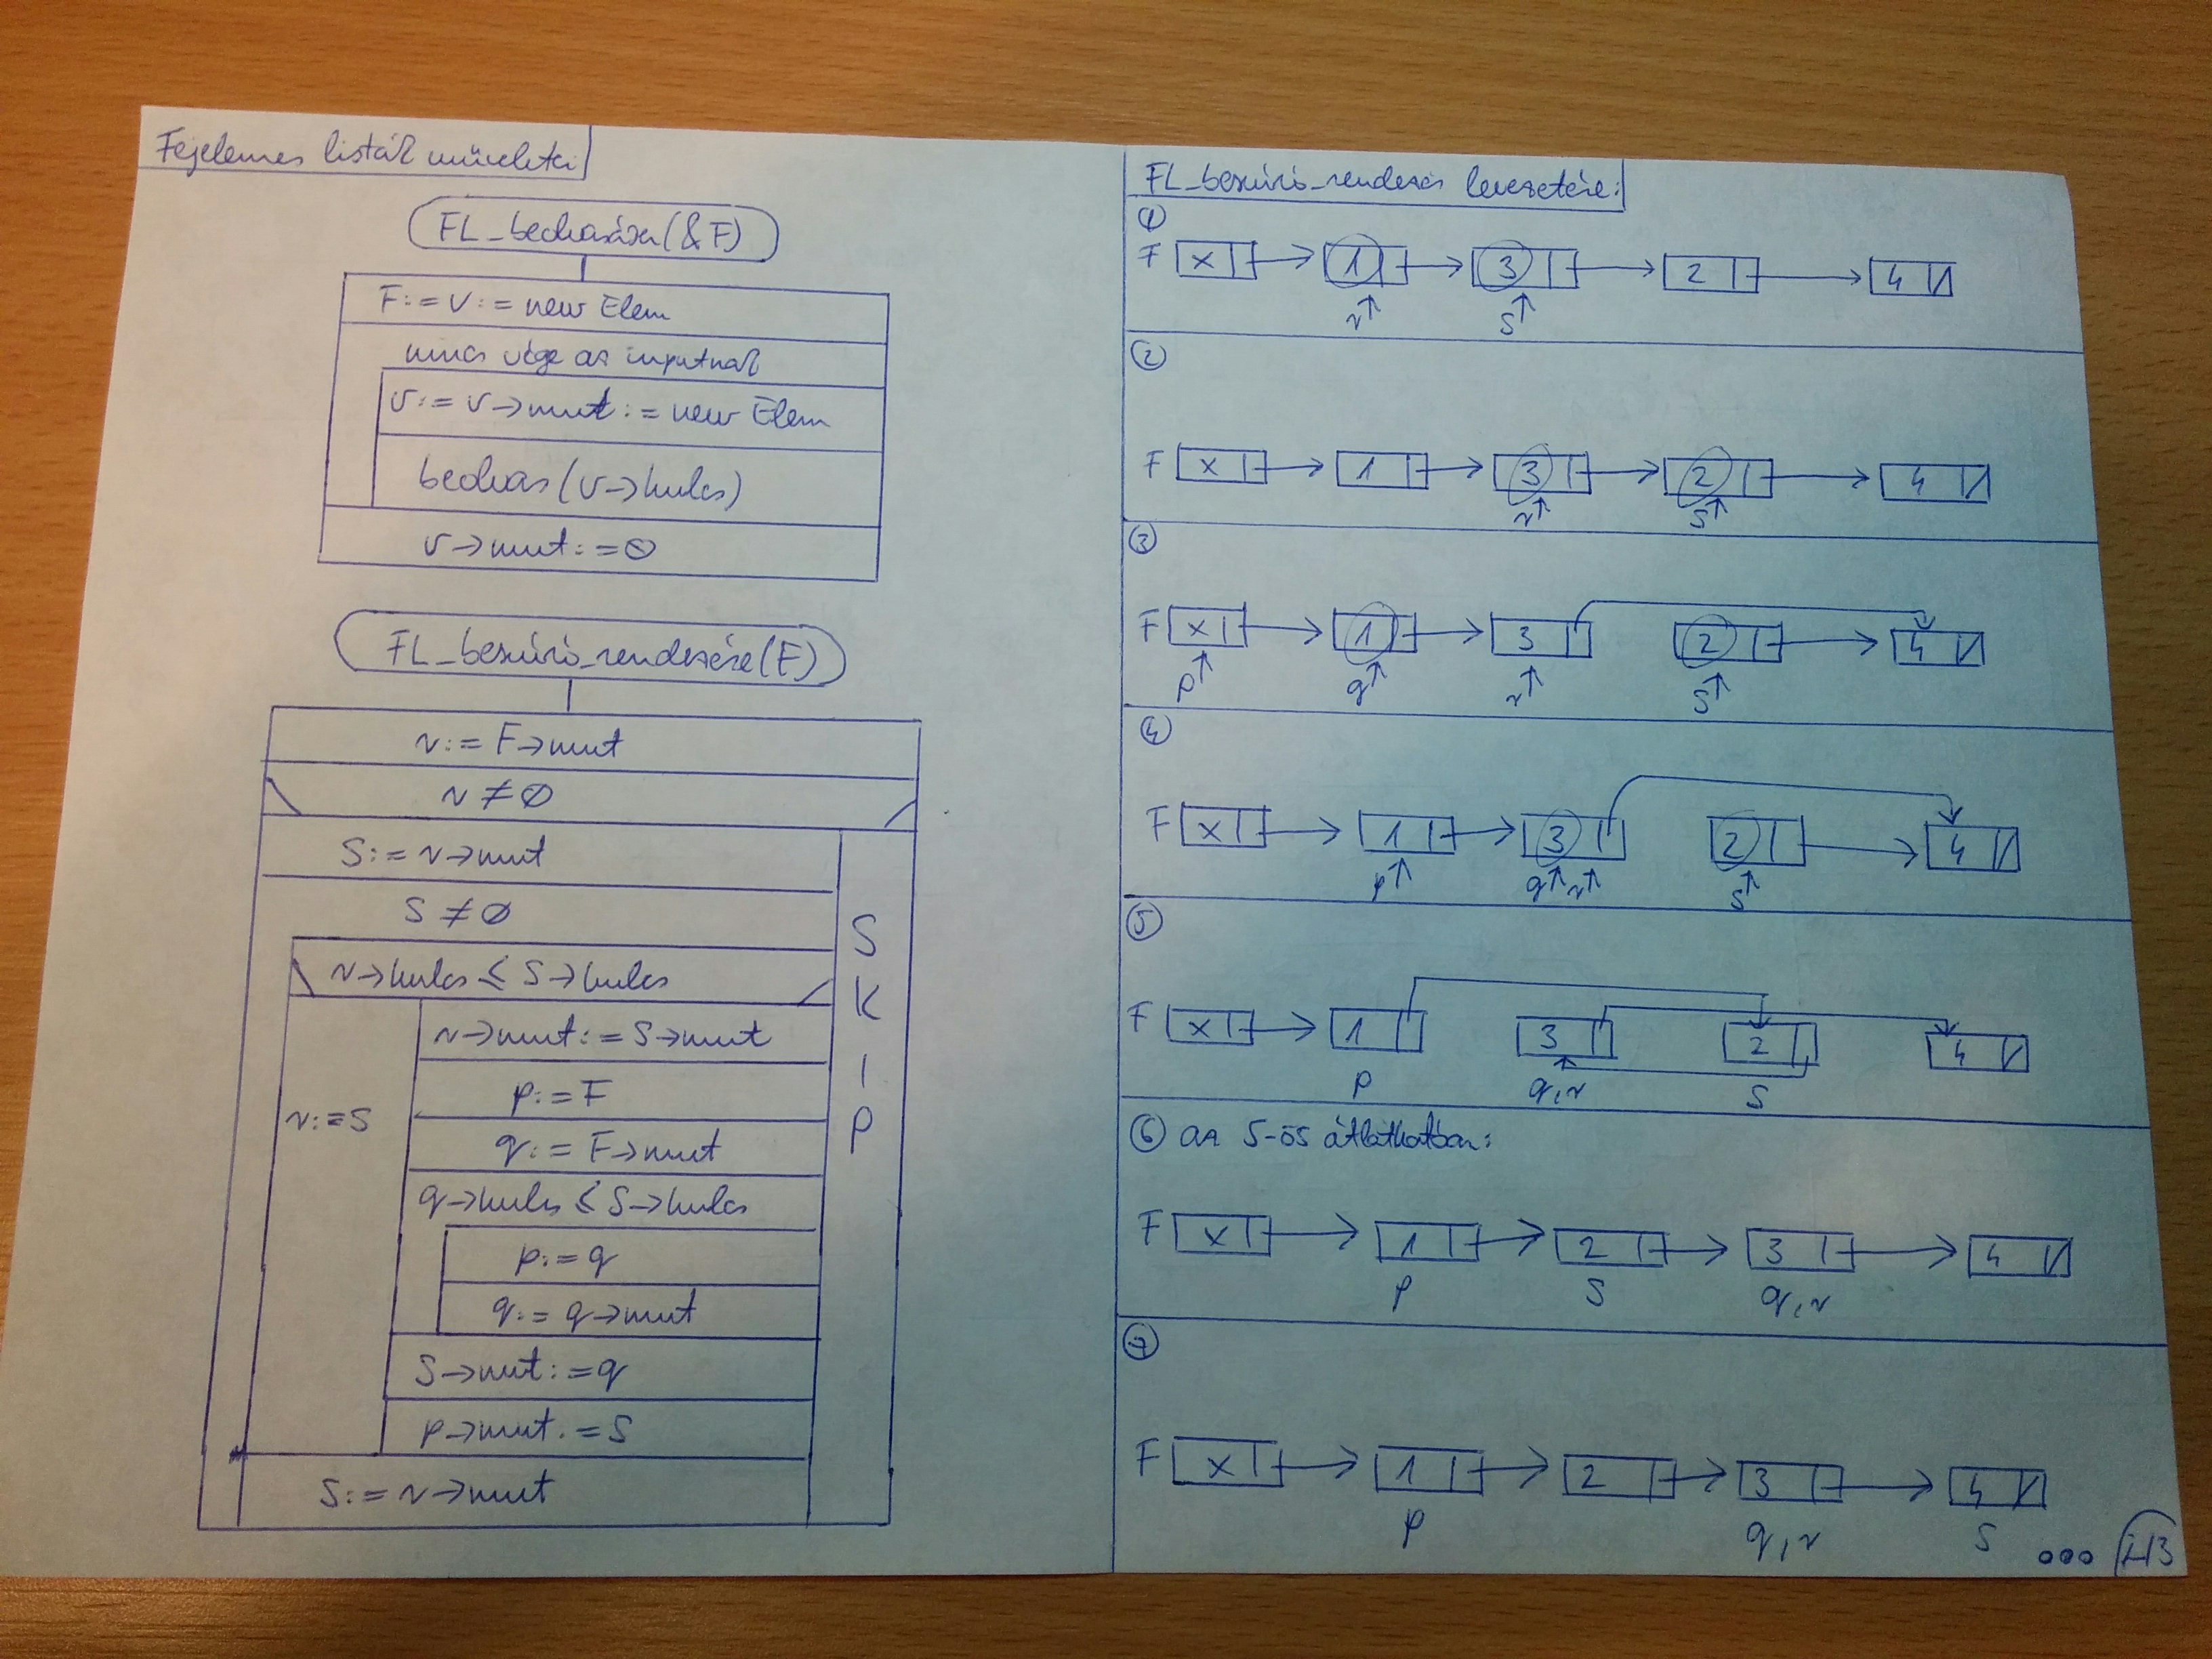 Fejelemes listák műveletei
FL_beolvasása(&F)
F:=v:=new Elem
nincs vége az inputnak
v:=v→mut:=new Elem
beolvas(v→kulcs)
v→mut:=⊘
FL_beszúró_rendezése(F)
r:=F→mut
r≠∅
S:=r→mut
S≠∅
r→kulcs ≤ S→kulcs
r:=S
r→mut:=S→mut
p:=F
q:=F→mut
q→kulcs ≤ S→kulcs
p:=q
q:=q→mut
S→mut:=q
p→mut.=S
S:=r→mut
SKIP
FL_beszúró_rendezés levezetése:
①
F x 1 3 2 4
r S
②
F x 1 3 2 4
r S
③
F x 1 3 2 4
p q r S
④
F x 1 3 2 4
p q r S
⑤
F x 1 3 2 4
p q,r S
⑥ az 5-ös átláthatóan:
F x 1 2 3 4
p S q,r
⑦
F x 1 2 3 4
p q,r S
...